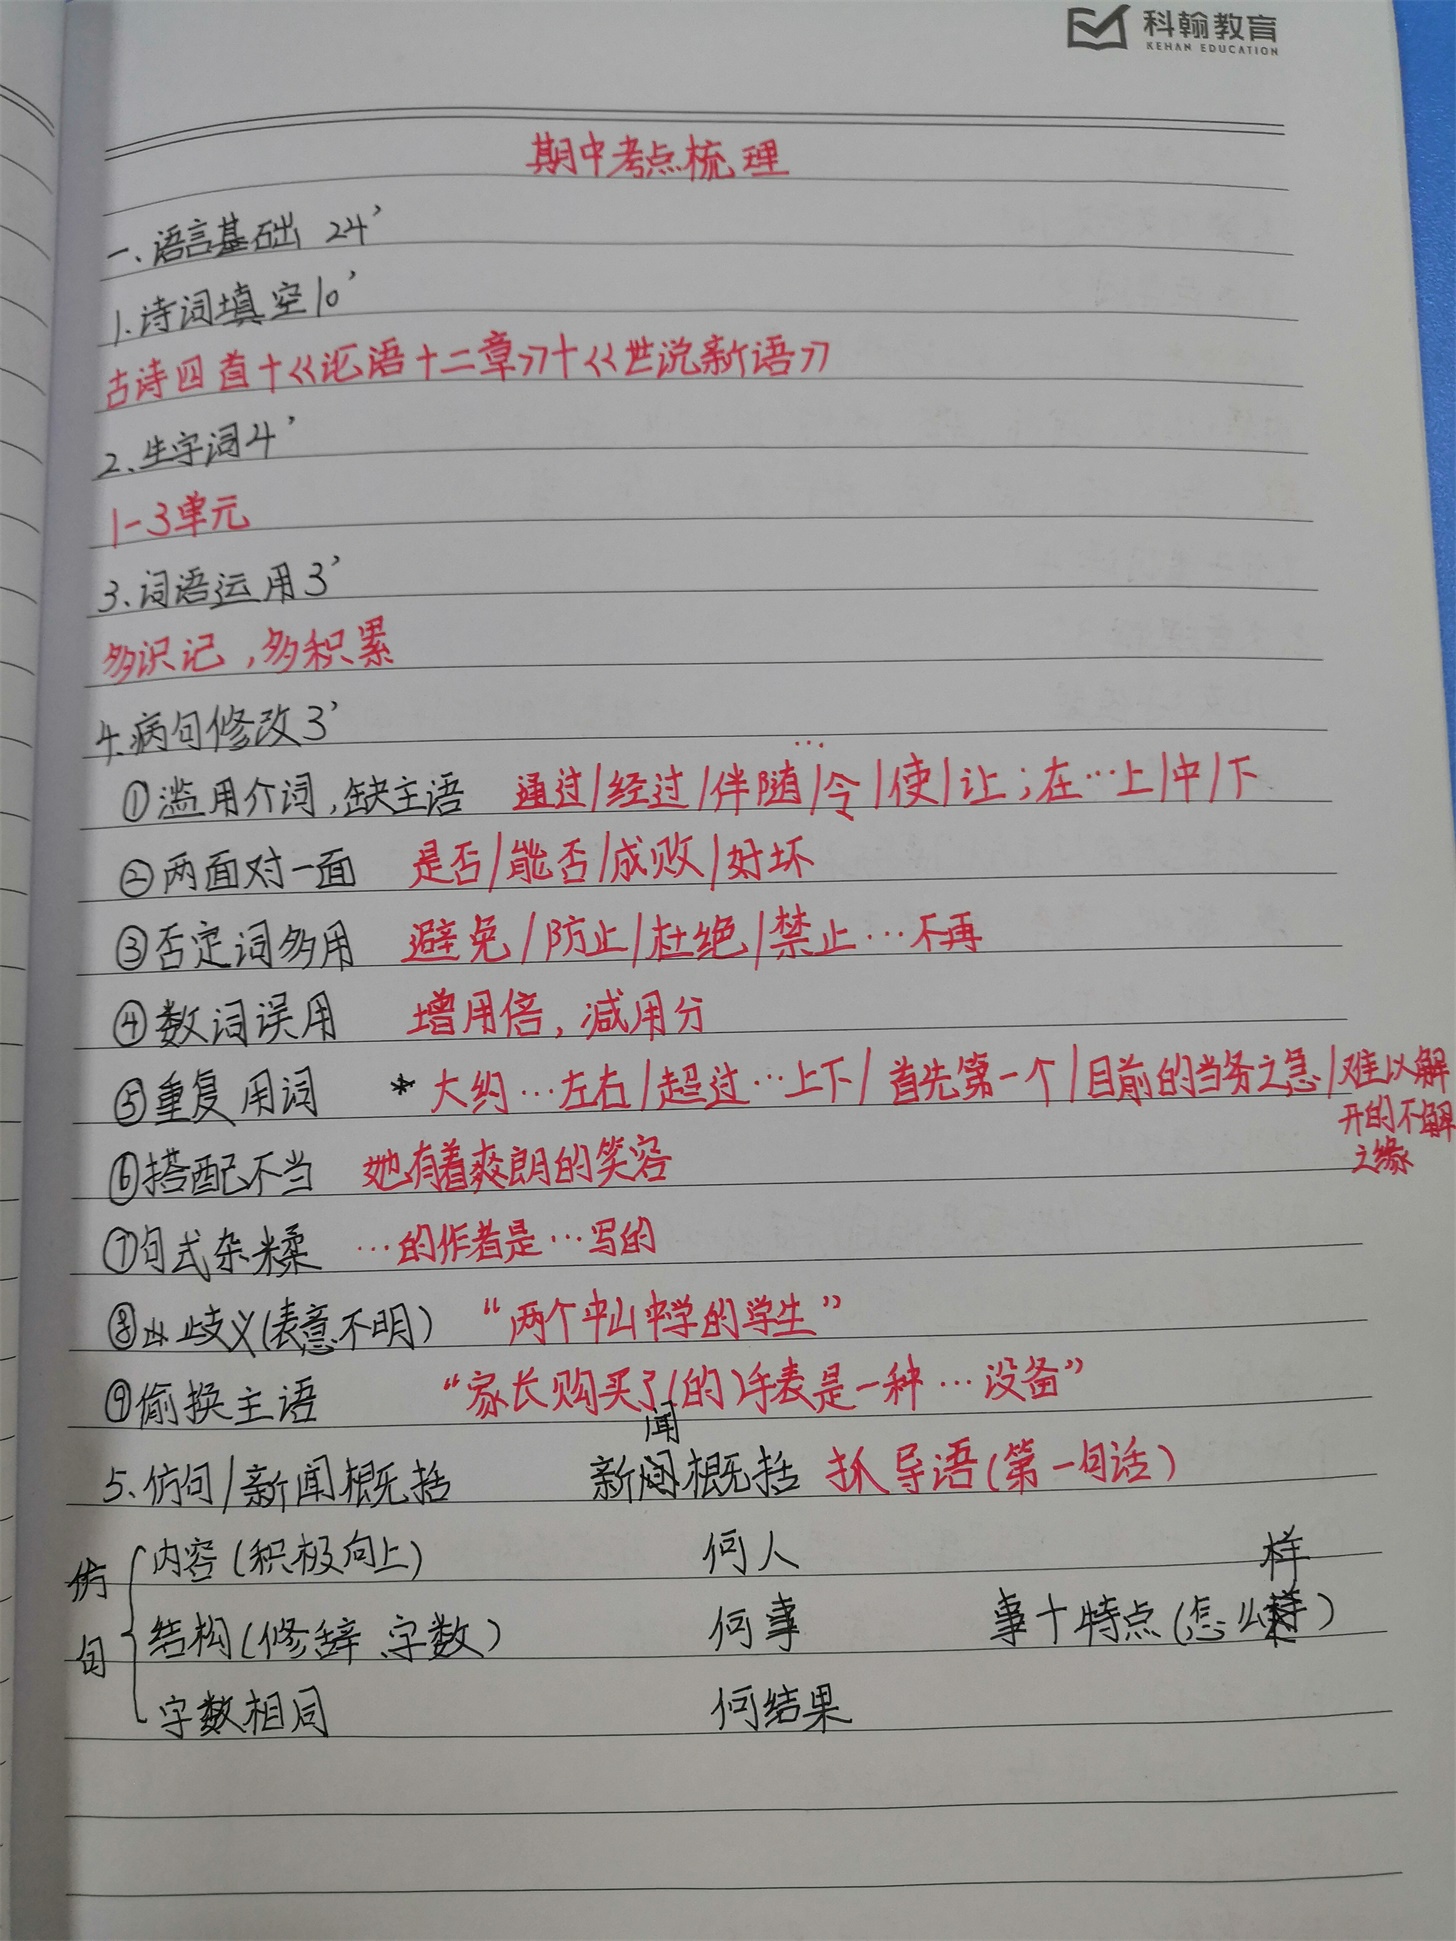 科翰教育
KEHAN EDUCATION
期中考点梳理
一、语言基础 24'
1.诗词填空10'
古诗四首+《论语十二章》+《世说新语》
2、生字词4'
1-3单元
3、词语运用3'
多识记,多积累
4.病句修改3'
①滥用介词,缺主语 通过/经过/伴随/令/使/让;在…上/中/下
②两面对一面 是否/能否/成败/好坏
③否定词多用 避免/防止/杜绝/禁止…不再
④数词误用 增用倍,减用分
⑤重复用词 *大约…左右/超过…上下/首先第一个/目前的当务之急/难以解
开的不解
之缘
⑥搭配不当 她有着爽朗的笑容
⑦句式杂糅 …的作者是…写的
⑧歧义(表意不明) “两个中山中学的学生”
⑨偷换主语 “家长购买了(的)手表是一种…设备”
5、仿句/新闻概括 新闻概括 抓导语(第一句话)
仿句
内容(积极向上) 何人
结构(修辞、字数) 何事 事+特点(怎么样)
字数相同 何结果